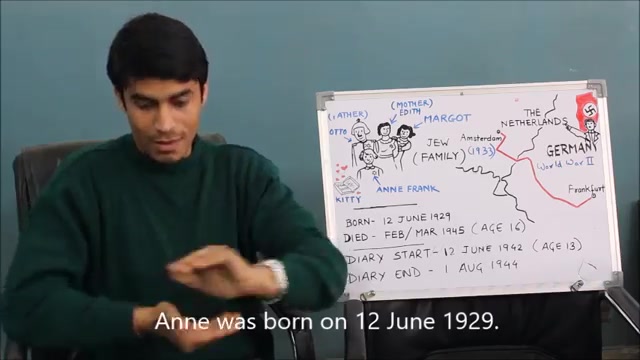 (FATHER)
OTTO
(MOTHER)
EDITH
MARGOT
ANNE FRANK
KITTY
JEW
(FAMILY)
THE
NETHERLANDS
Amsterdam
(1933)
GERMANY
World War II
Frankfurt
BORN - 12 JUNE 1929
DIED - FEB/MAR 1945 (AGE 16)
DIARY START - 12 JUNE 1942 (AGE 13)
DIARY END - 1 AUG 1944
Anne was born on 12 June 1929.